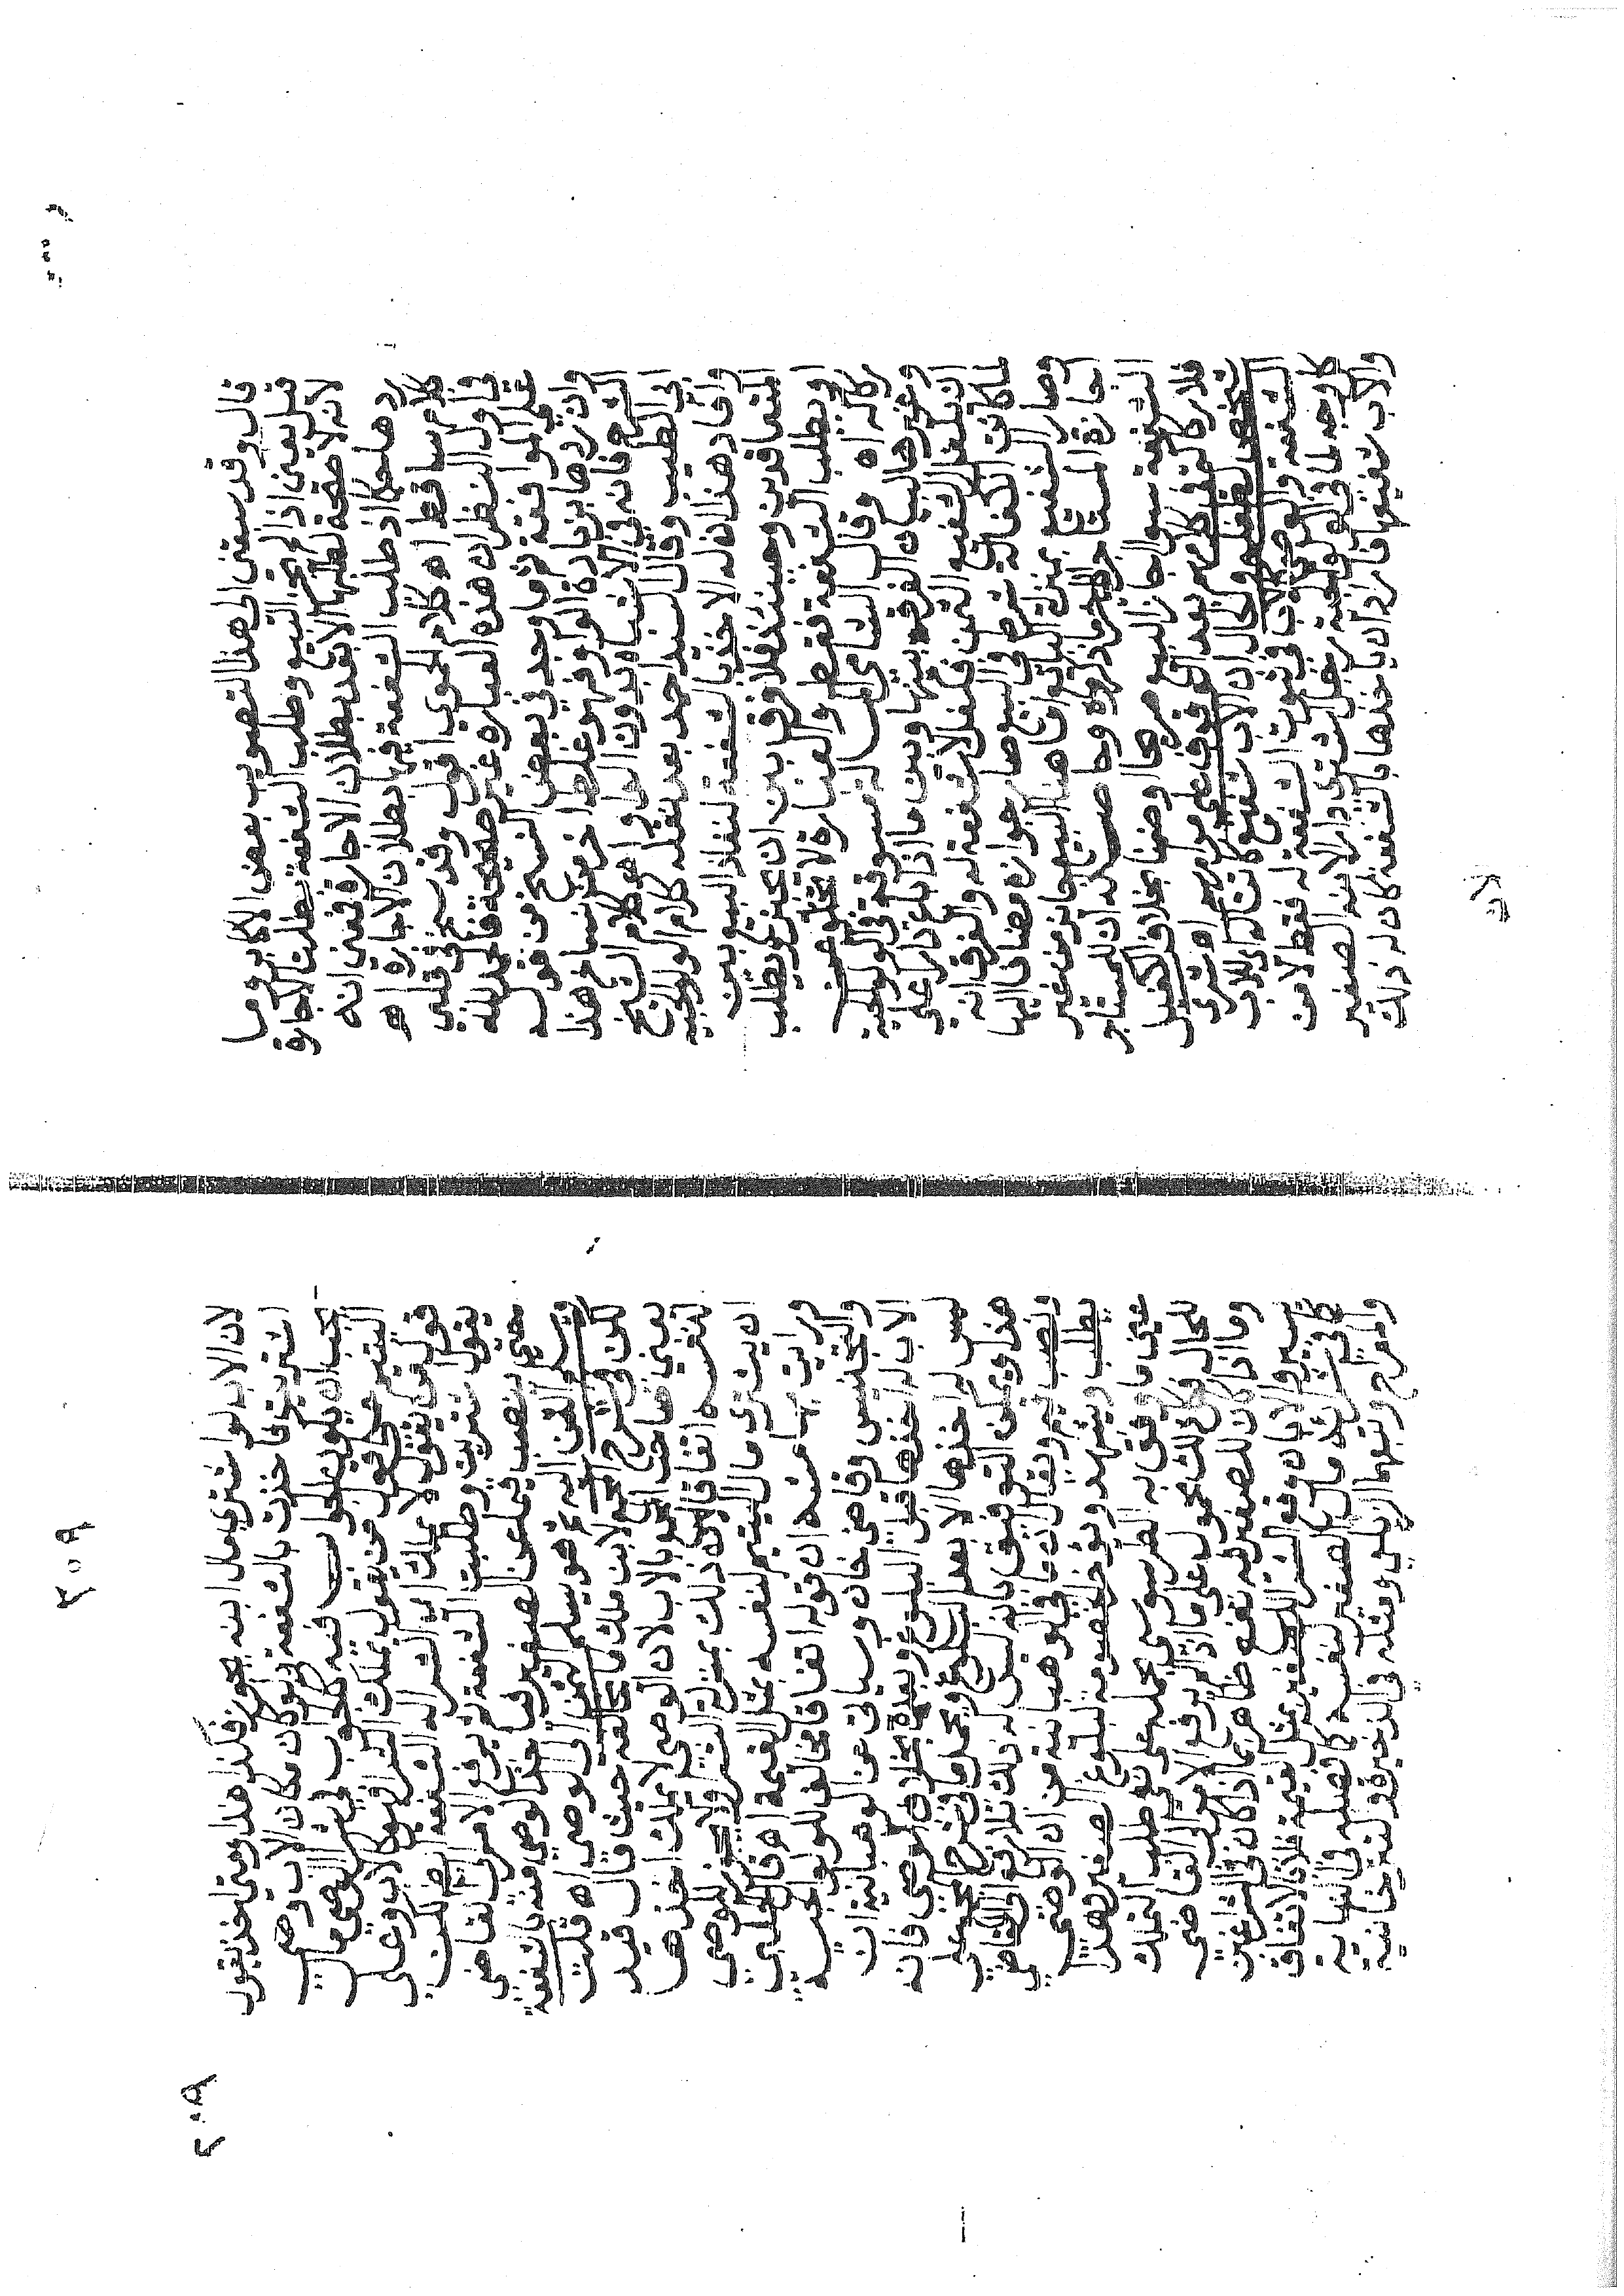 قال وقد سبقني الى هذا التصويب بعض الاكابر وما
قبل يعني اذا لم يجز البيع وطلب الشفعة بطلت الاجارة
لانه لا صحة لطلبها الا بعد بطلان الاجارة فعنى انه
ردها حكما اذ طلب الشفعة فيها بطلان الاجارة اه
كلام ساقط اه كلام الحموي اقول وقد سبح في قلبي
في اول النظر ان هذه العبارة غير صحيحة فالحمد لله
على الموافقة ثم ما وجد في بعض النسخ من قوله
وان ردها بزيادة الواو فهو غلط اخر من نساخ هذا
الشرح فانه في الاشباه بدون الواو اه كلام الشيخ
ابي الطيب وقال السيد احمد بعد نقله كلام الولوالجية
وافاد هذا ان له الاخذ بالشفعة لنفاذ البيع بين
المتعاقدين وحينئذ فلا فرق بين ان يجيز ثم يطلب
او يطلب الشفعة فقط والعبارة لا تخلو عن
ركاكة اه وقال الشامي المسالة مسوقة في الولوالجية
وغيرها لبيان الفرق بينها وبين ما اذا باع دارا على
ان يكفل الشفيع الثمن فكفل لا شفعة له والفرق انه
لما كانت الكفالة شرطا في البيع صار جوازه مضافا اليها
وصار الشفيع بمنزلة البائع اما هنا البيع جائز من غير
اجازة المستاجر الخ ما ذكروه وحاصله ان للمستاجر
الشفعة سوا اجاز البيع صريحا او ضمنا بخلاف الكفيل
فلا ركاكة في كلامهم بعد الوقوف على مرامهم اه شرى
شخص لطفله والحال ان الاب شفيع كان له اي للاب
الشفعة والوصي كالاب في ثبوت الشفعة له فقط لا من
كل وجه لما في الولوالجية رجل اشترى دارا لابنه الصغير
والاب شفيعها فاراد ان ياخذها بالشفعة كان له ذلك
لان الاب لو اشترى مال ابنه يجوز فكذا هذا ومتى اخذ يقول
اشتريت واخذت بالشفعة ولو كان مكان الاب وصي
يجب ان يكون الجواب فيه كالجواب في شرا الوصي مال
اليتيم على قول من يقول يملك الشرا فهو كالاب وعلى
قول من يقول لا يملك الشرا له الشفعة ايضا لكن
يقول اشتريت وطلبت الشفعة ثم يرفع الامر الى القاضي
حتى ينصب قيما عن الصغير فياخذ الوصي منه بالشفعة
ويسلم الثمن اليه ثم هو يسلم الثمن الى الوصي اه قلت
لكن في شرح المجمع لابن ملك ما يخالفه حيث قال قيد
يعني صاحب المجمع بالاب لان الوصي لا يملك اخذها
لنفسه اتفاقا لان ذلك بمنزلة الشرا ولا يجوز للوصي
ان يشتري مال اليتيم لنفسه بمثل القيمة اه قال الحلبي
ورايت بهامشه ان قوله اتفاقا مخالف للولوالجية
والتجنيس وقاضي خان وسياتي عن الوهبانية ان
الاب له اخذها قبل البلوغ وبعده بخلاف الوصي فانه
ليس له اخذها الا بعد البلوغ ويحمل ما في شرح المجمع على
هذا ويمكن التوفيق بانه ليس له ذلك بلا رفع الى القاضي
ونصب قيم ويقال ان ما في الوهبانية من ان الوصي
يطلب ويشهد ويؤخر الخصومة لبلوغ الصغير وهذا
عين ما وفق به الطرسوسي بحمله على نفي طلب التملك
للحال وكذلك محمول على ما اذا لم يرفع الامر الى القاضي
وما اذا كان للصغير فيه نفع ظاهر بما اذا كان في الشرا غبن
يسير والا بان وقع الشرا للصغير بمثل القيمة فلا بالاتفاق
كما في شرائه مال الصغير لنفسه كما فصله في النهاية
والمعراج وتبعهما الزيلعي ومثله في الذخيرة والتتارخانية
٣٠٩
٢٠٩